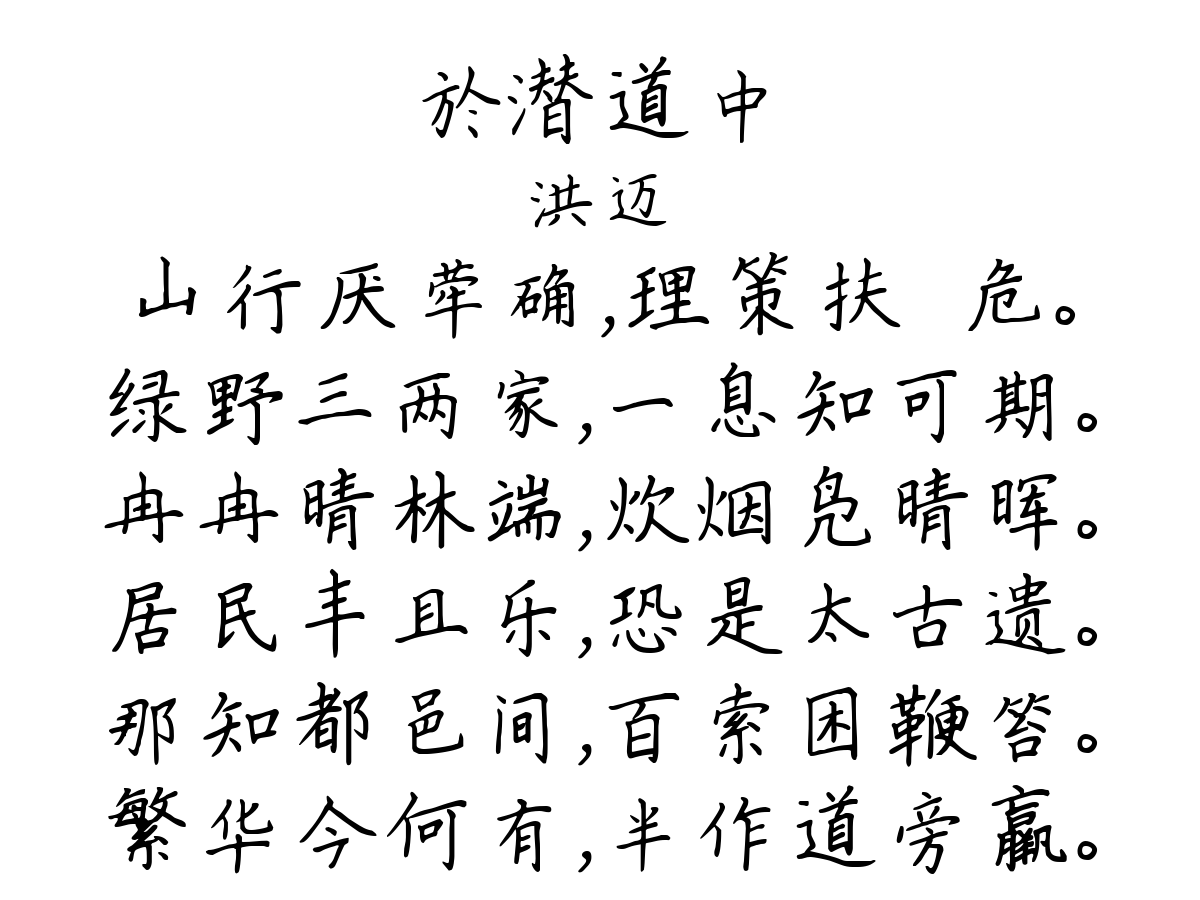 於潜道中
洪迈
山行厌荦确,理策扶 危。
绿野三两家,一息知可期。
冉冉晴林端,炊烟凫晴晖。
居民丰且乐,恐是太古遗。
那知都邑间,百索困鞭笞。
繁华今何有,半作道旁羸。